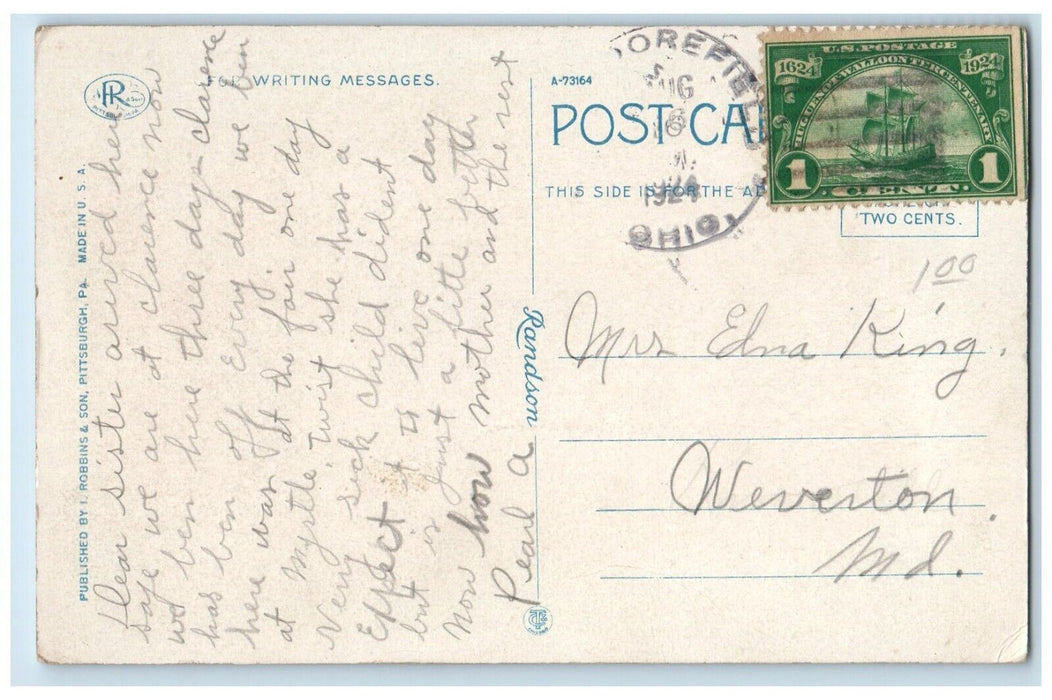 PUBLISHED BY I. ROBBINS & SON, PITTSBURGH, PA. MADE IN U. S. A.
R
PITTSBURGH, PA.
FOR WRITING MESSAGES.
Dear sister arived here
safe we are at clarence now
we ben here three days clarence
has ben off every day we ben
here was at the fair one day
at Myrtle Twist she has a
Very sick child dident
Expect it to live one day
but is Just a little better
now how mother and the rest
Pearl a
Randson
A-73164
POST CA
THIS SIDE IS FOR THE AD
TWO CENTS.
MOOREFIELD
AUG
1924
OHIO
U.S. POSTAGE
1624 1924
HUGUENOT WALLOON TERCENTENARY
1 1
1.00
Mrs Edna King.
Weverton,
Md.